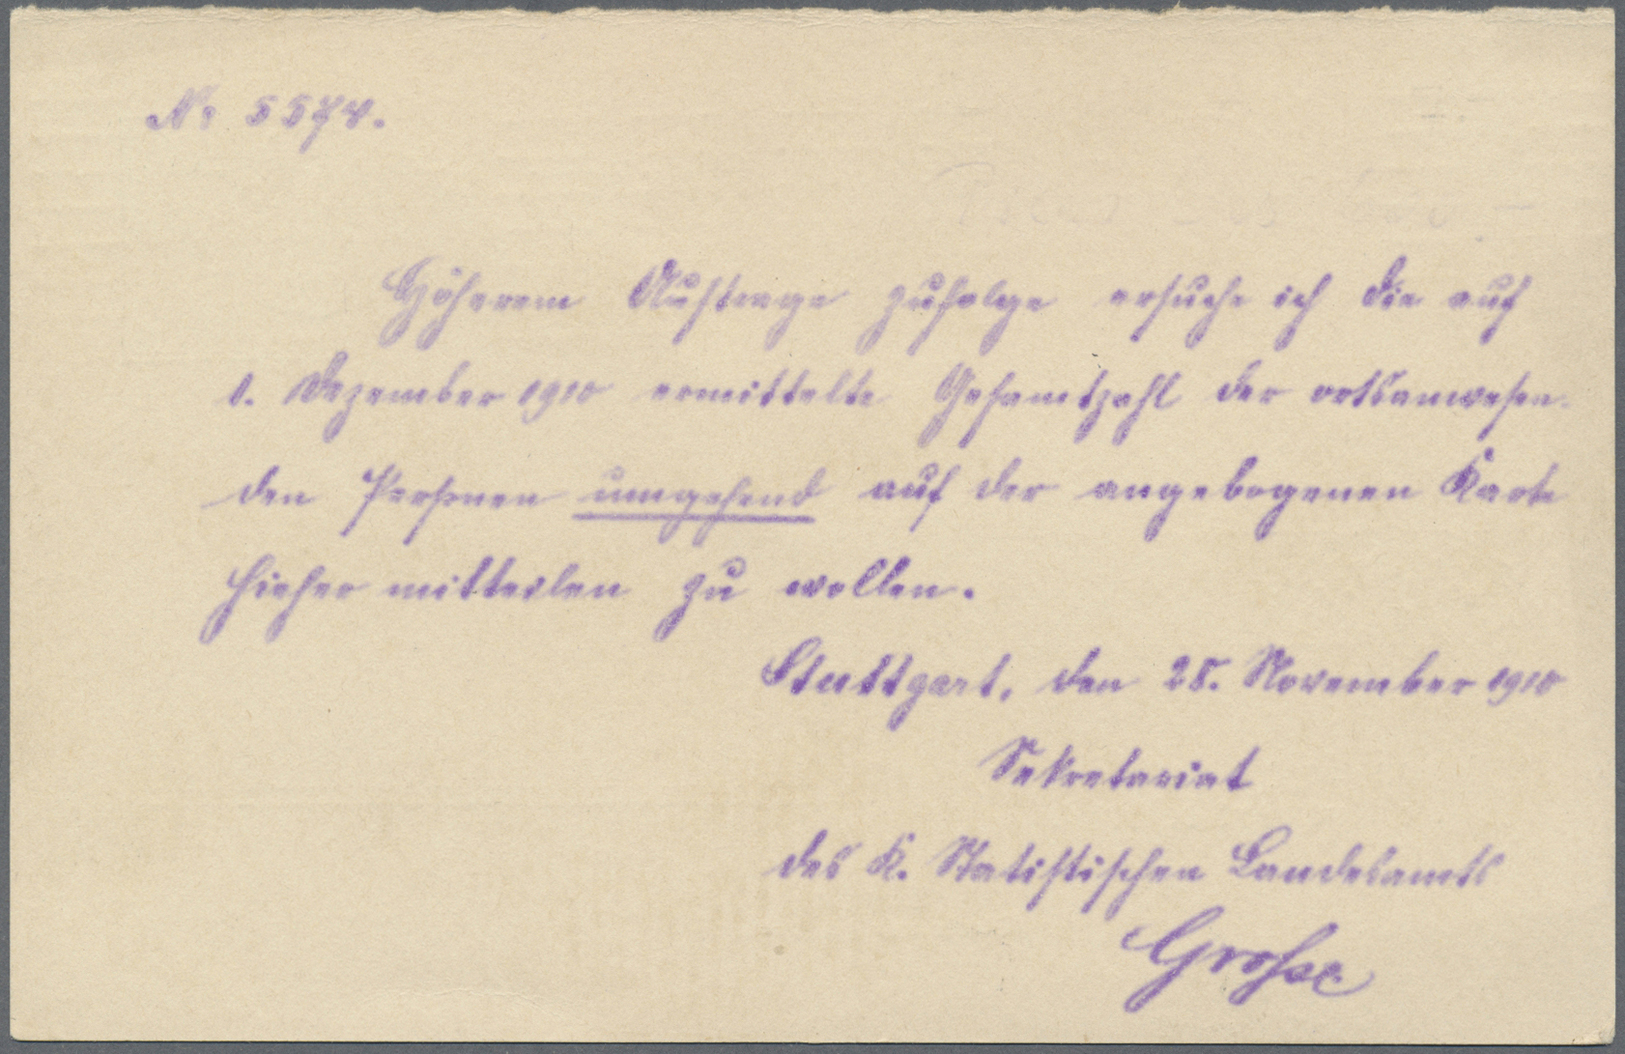 No 5574.
Höherem Auftrage zufolge ersuche ich die auf
1. Dezember 1910 ermittelte Gesamtzahl der ortsanwesen-
den Personen umgehend auf der angebogenen Karte
hieher mitteilen zu wollen.
Stuttgart, den 28. November 1910
Sekretariat
des K. Statistischen Landesamts
Grosse